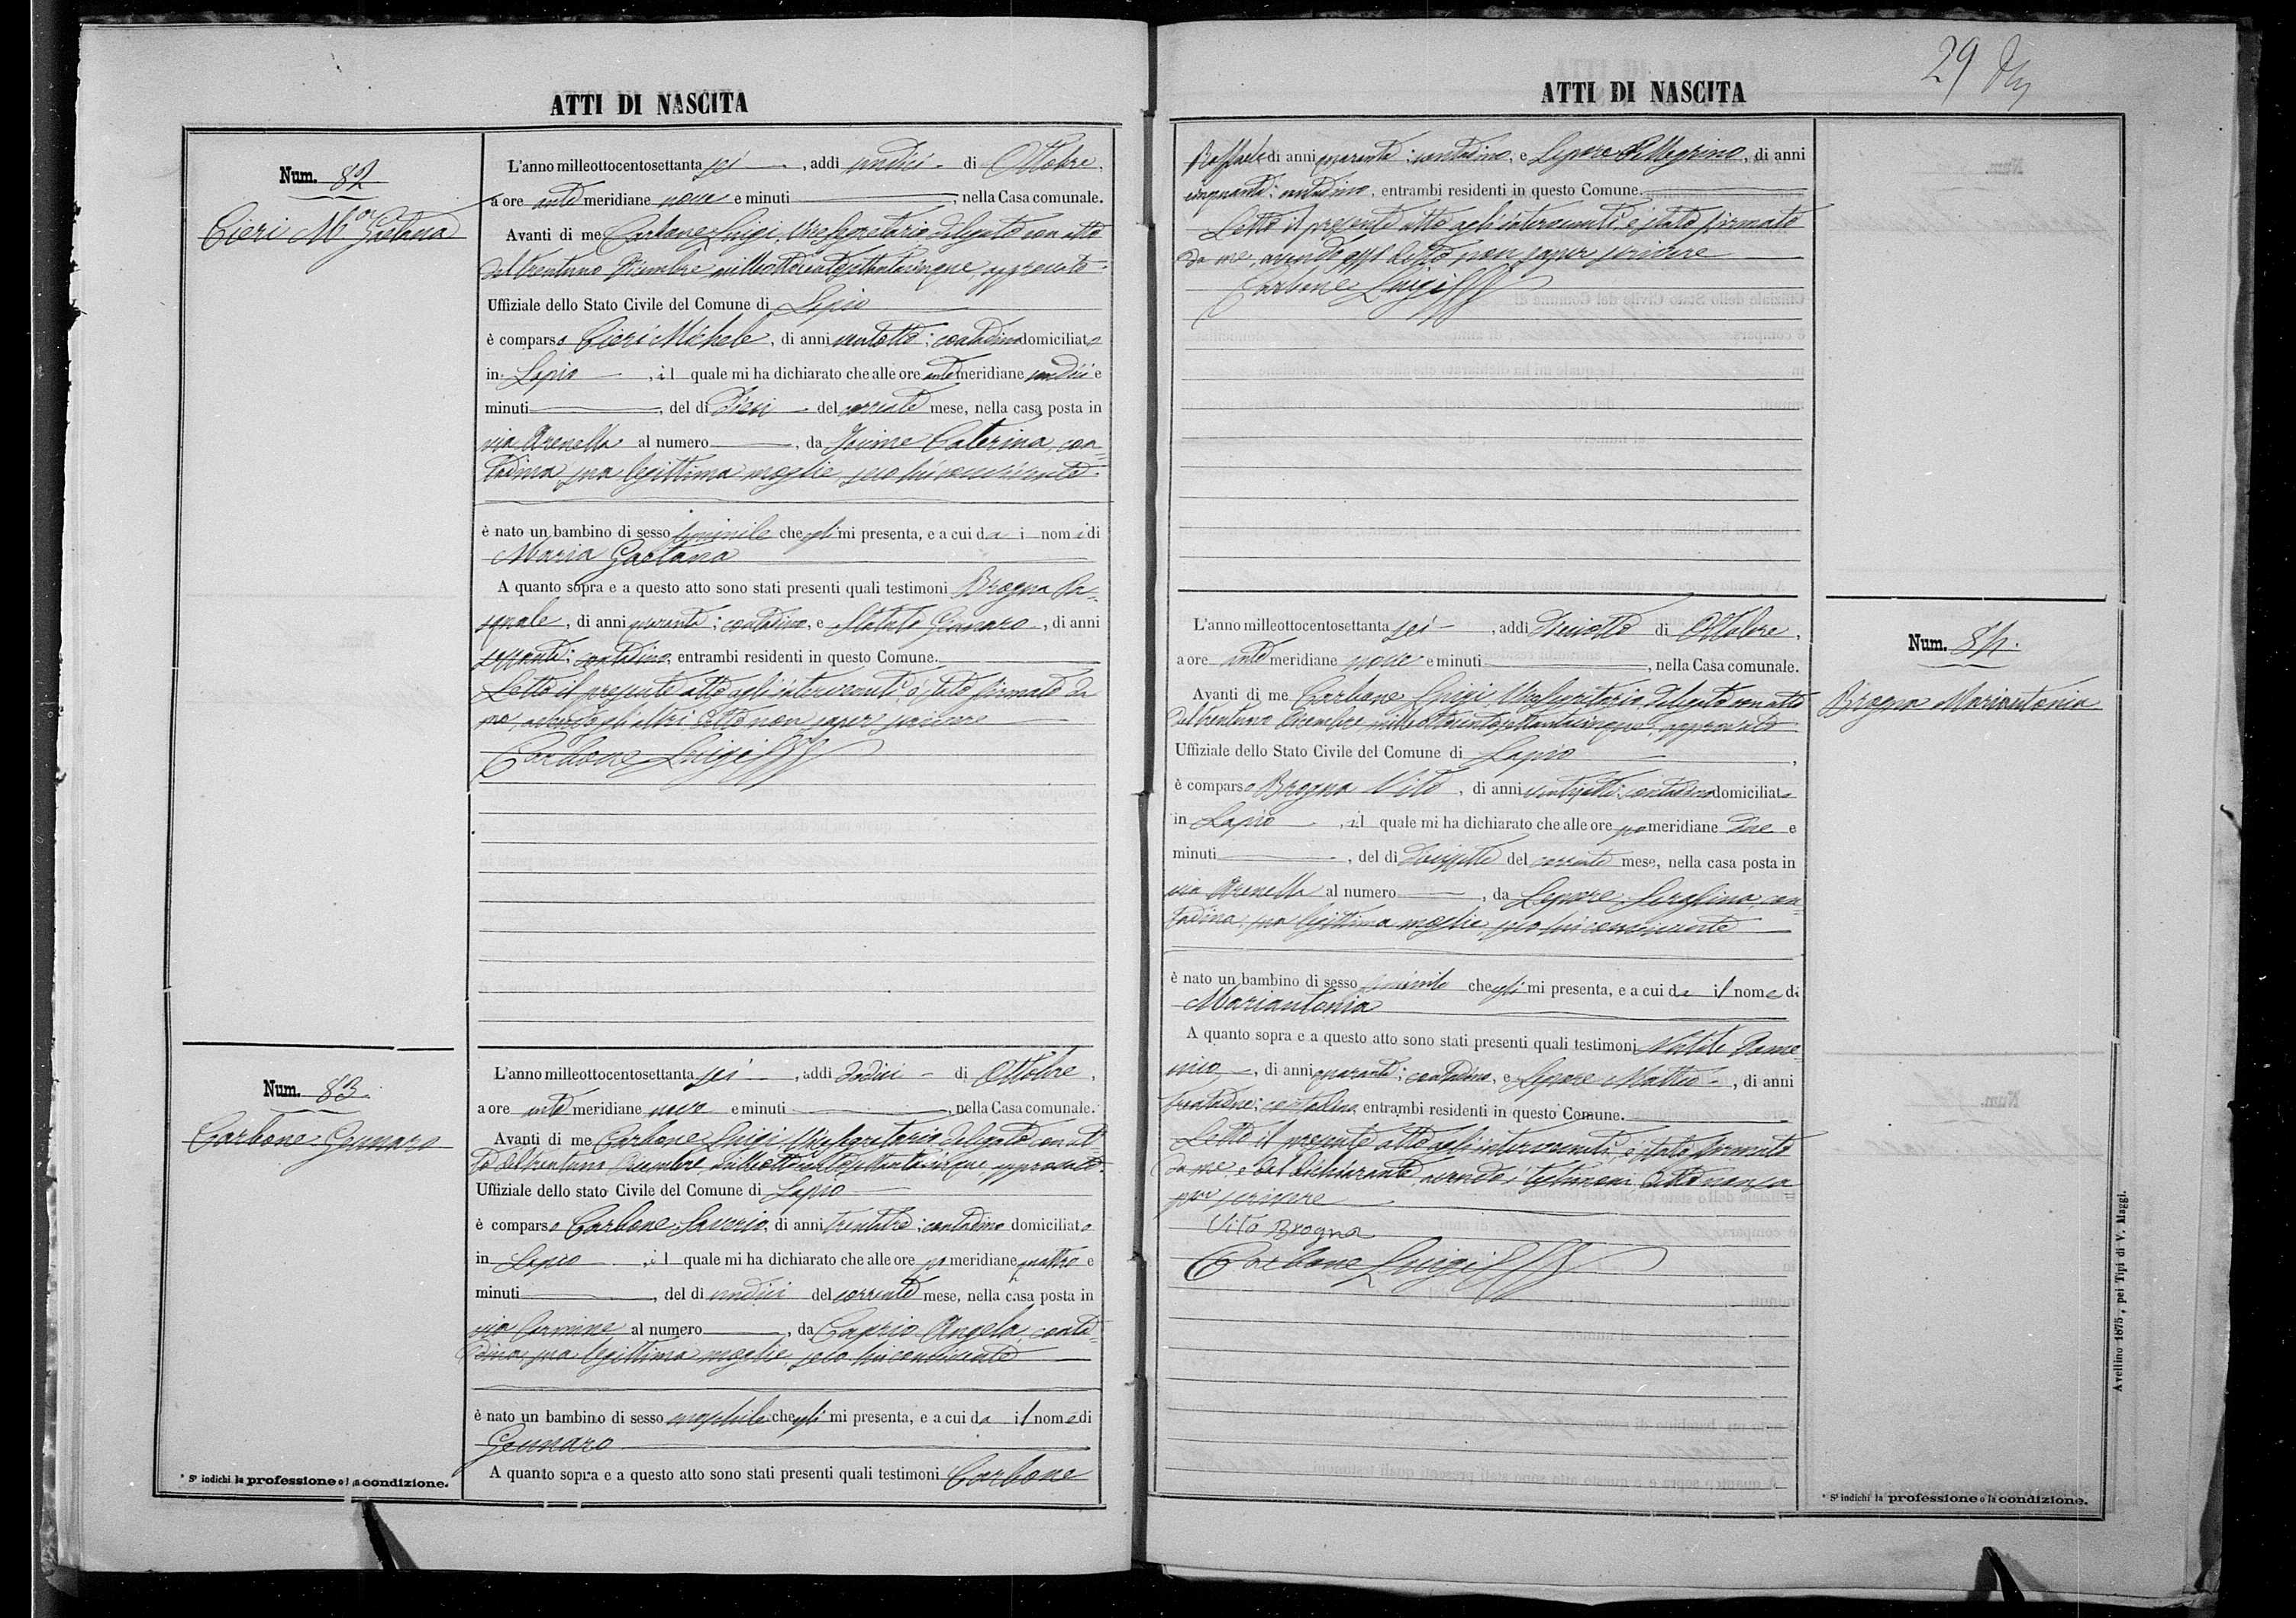 ATTI DI NASCITA
Num. 82
Cieri M.a Gaetana
L'anno milleottocentosettanta sei, addì undici di Ottobre,
a ore anti meridiane nove e minuti, nella Casa comunale.
Avanti di me Carbone Luigi, Vicesegretario delegato con atto
del trentuno Dicembre milleottocentosettantacinque approvato
Uffiziale dello Stato Civile del Comune di Lapio
è comparso Cieri Michele, di anni ventotto; contadino domiciliato
in Lapio, il quale mi ha dichiarato che alle ore anti meridiane undici e
minuti, del dì Dieci del corrente mese, nella casa posta in
via Arenella al numero, da Iacine Caterina, con=
tadina, sua legittima moglie, seco lui convivente
è nato un bambino di sesso feminile che egli mi presenta, e a cui dà i nomi di
Maria Gaetana
A quanto sopra e a questo atto sono stati presenti quali testimoni Brogna Pa=
squale, di anni quaranta; contadino, e Statuto Gennaro, di anni
sessanta; contadino, entrambi residenti in questo Comune.
Letto il presente atto agli intervenuti, è stato firmato da
me, avendo gli altri detto non saper scrivere
Carbone Luigi
Num. 83.
Carbone Gennaro
L'anno milleottocentosettanta sei, addì dodici di Ottobre,
a ore anti meridiane nove e minuti, nella Casa comunale.
Avanti di me Carbone Luigi, Vicesegretario delegato con at=
to del trentuno Dicembre milleottocentosettantacinque, approvato
Uffiziale dello stato Civile del Comune di Lapio
è comparso Carbone Saverio, di anni trentatre; contadino domiciliato
in Lapio, il quale mi ha dichiarato che alle ore po meridiane quattro e
minuti, del dì undici del corrente mese, nella casa posta in
via Carmine al numero, da Caprio Angela, conta=
dina, sua legittima moglie, seco lui convivente
è nato un bambino di sesso maschile che egli mi presenta, e a cui dà il nome di
Gennaro
A quanto sopra e a questo atto sono stati presenti quali testimoni Carbone
* Si indichi la professione o la condizione.
29
ATTI DI NASCITA
Raffaele di anni quaranta; contadino, e Lepore Pellegrino, di anni
cinquanta; contadino, entrambi residenti in questo Comune.
Letto il presente atto agli intervenuti, è stato firmato
da me, avendo essi detto non saper scrivere
Carbone Luigi
Num. 84.
Brogna Mariantonia
L'anno milleottocentosettanta sei, addì Diciotto di Ottobre,
a ore anti meridiane nove e minuti, nella Casa comunale.
Avanti di me Carbone Luigi, Vicesegretario delegato con atto
del trentuno Dicembre milleottocentosettantacinque, approvato
Uffiziale dello Stato Civile del Comune di Lapio,
è comparso Brogna Vito, di anni ventisette; contadino domiciliato
in Lapio, il quale mi ha dichiarato che alle ore po meridiane due e
minuti, del dì diciassette del corrente mese, nella casa posta in
via Arenella al numero, da Lepore Serafina, con=
tadina, sua legittima moglie, seco lui convivente
è nato un bambino di sesso feminile che egli mi presenta, e a cui dà il nome di
Mariantonia
A quanto sopra e a questo atto sono stati presenti quali testimoni Natale Dome=
nico, di anni quaranta; contadino, e Lepore Matteo, di anni
trentadue; contadino, entrambi residenti in questo Comune.
Letto il presente atto agli intervenuti, è stato firmato
da me e dal dichiarante, avendo i testimoni detto non sa=
per scrivere
Vito Brogna
Carbone Luigi
* Si indichi la professione o la condizione.
Avellino 1875, pei Tipi di V. Maggi.